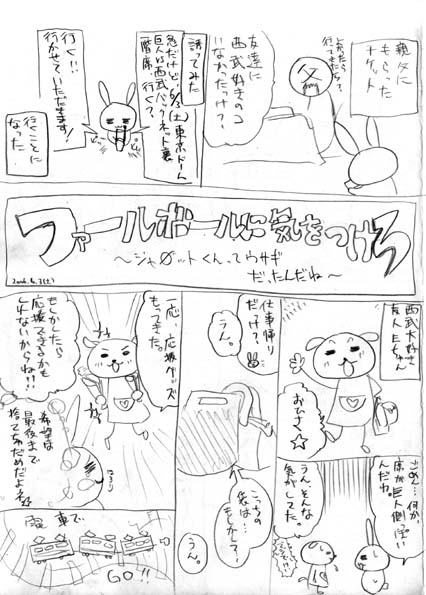 親父に
もらった
チケット
よかったら
行ってきたら？
父
友達に
西武好きのコ
いなかったっけ？
誘ってみた
急だけど、6/3(土)東京ドーム
巨人VS西武バックネット裏
2階席、行く？
行く!!
行かせていただきます!
行くことに
なった
ファールボールに気をつけろ
～ジャ○ットくんってウサギ
だったんだね～
2006.6.3(土)
西武大好き
友人Eちゃん
おひさ☆
仕事帰り
だっけ？
うん。
こっちの
袋は…
もしかして？
うん。
一応、応援グッズ
もってきた。
もしかしたら
応援できるかも
しれないからね!!
希望は
最後まで
捨てちゃだめだよネ
ほろり
ごめん…何か、
席が巨人側っぽい
んだわ。
うん、そんな
気がしてた。
電車で
GO!!